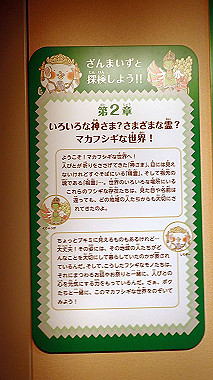 ざんまいずと
探検しよう!!
第2章
いろいろな神さま?さまざまな霊?
マカフシギな世界!
ようこそ!マカフシギな世界へ!
人びとが祈りをささげてきた「神さま」、目には見え
ないけれどすぐそばにいる「精霊」、そして祖先の
魂である「祖霊」…。世界のいろいろな場所にいる
これらのフシギな存在たちは、見た目や名前は
違っても、どの地域の人たちからも大切に
されてきたのよ。
ちょっとブキミに見えるものもあるけれど…
大丈夫!その姿には、その地域の人たちがど
んなことを大切にして暮らしていたのかが表され
ているんだ。そして、こうしたフシギなモノたちは、
それにまつわるお話やお祭りと一緒に、人びとの
心を元気にする力をもっているんだ。さぁ、ボク
たちと一緒に、このマカフシギな世界をのぞいて
みよう!